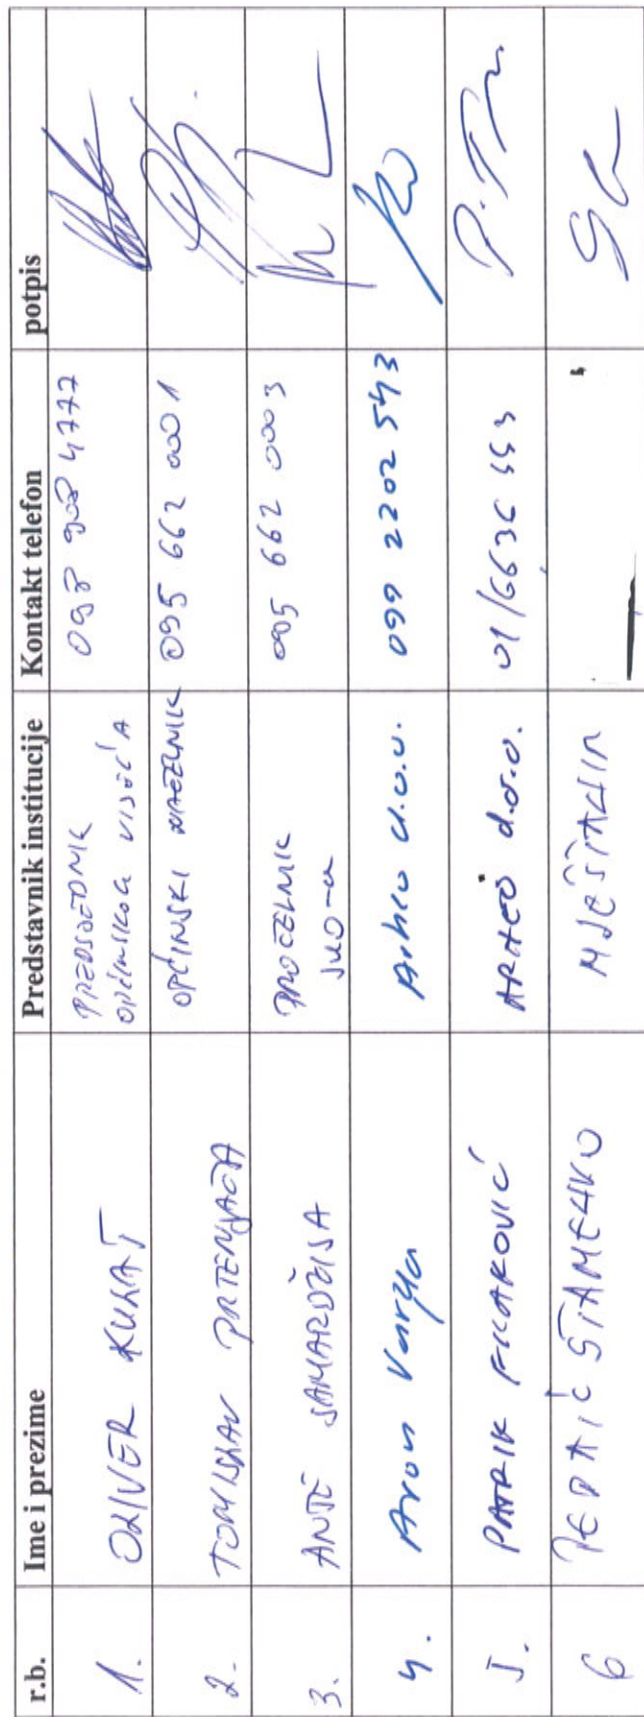 r.b. Ime i prezime Predstavnik institucije Kontakt telefon potpis
1. OLIVER KUHAT PREDSJEDNIK
OPĆINSKOG VIJEĆA
2. TOMISLAV OPĆINSKI NAČELNIK 095 662 0001
3. ANTE SAMARDŽIJA PROČELNIK
JUO-a 095 662 0003
4. Aron Varga Arheo d.o.o. 099 2202 543
5. PATRIK FILAKOVIĆ ARHEO d.o.o.
6 ŠTAMENKO MJEŠTANIN